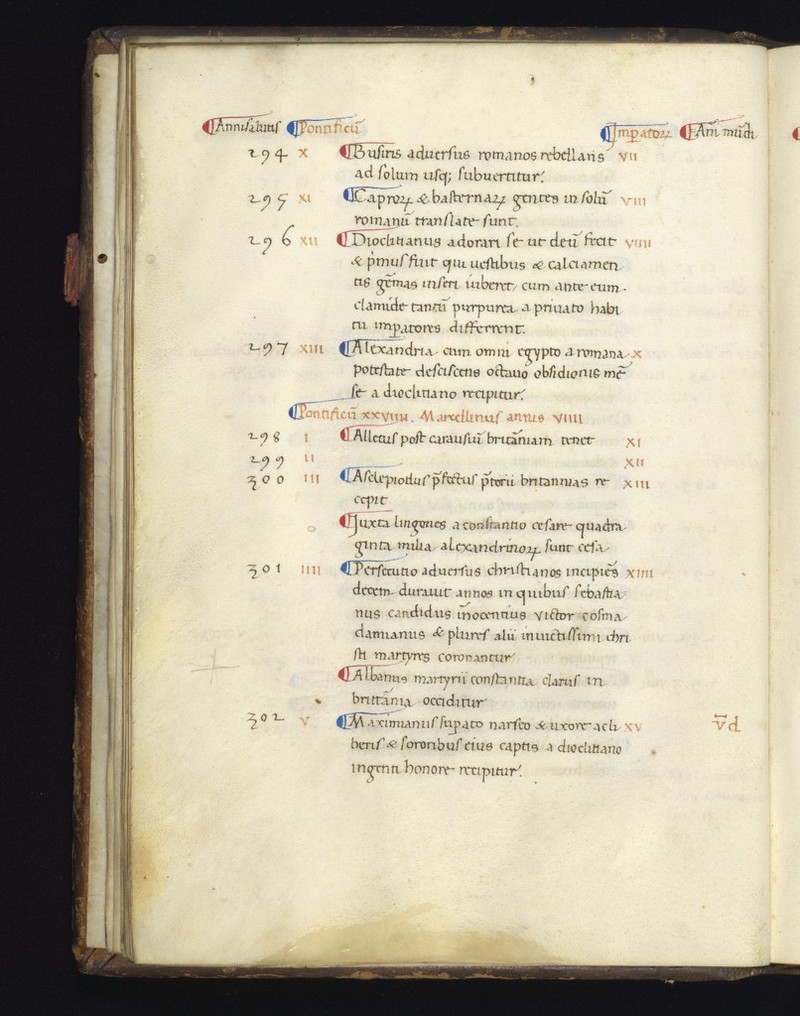 Anni salutis Pontificū Imperatoꝝ Añi mūdi
294 x Busiris aduersus romanos rebellans vii
ad solum usq; subuertitur.
295 xi Caproꝝ & basternaꝝ gentes in solū viii
romanū translate sunt.
296 xii Dioclitianus adorari se ut deū fecit viiii
& pͥmus fuit qui uestibus & calciamen
tis gēmas inseri iuberet, cum ante eum
clamide tantū purpurea a priuato habi
tu imꝑatores differrent.
297 xiii Alexandria cum omni egypto a romana x
potestate desciscens octauo obsidionis mē
se a dioclitiano recipitur.
Pontificū xxviiii. Marcellinus annis viiii
298 i Allectus post carausiū britāniam tenet xi
299 ii xii
300 iii Asclepiodus p̄fectus p̄torii britannias re xiii
cepit
Juxta lingones a constantio cesare quadra
ginta milia alexandrinoꝝ sunt cesa
301 iiii Persecutio aduersus christianos incipiēs xiiii
decem durauit annos in quibus sebastia
nus candidus inocentius victor cosma
damianus & plures alii inuictissimi chri
sti martyres coronantur
Albanus martyrii constantia clarus in
brittānia occiditur
302 v Maximianus suꝑato narseo & uxore ac li xv v̄d
beris & sororibus eius captis a dioclitiano
ingenti honore recipitur.